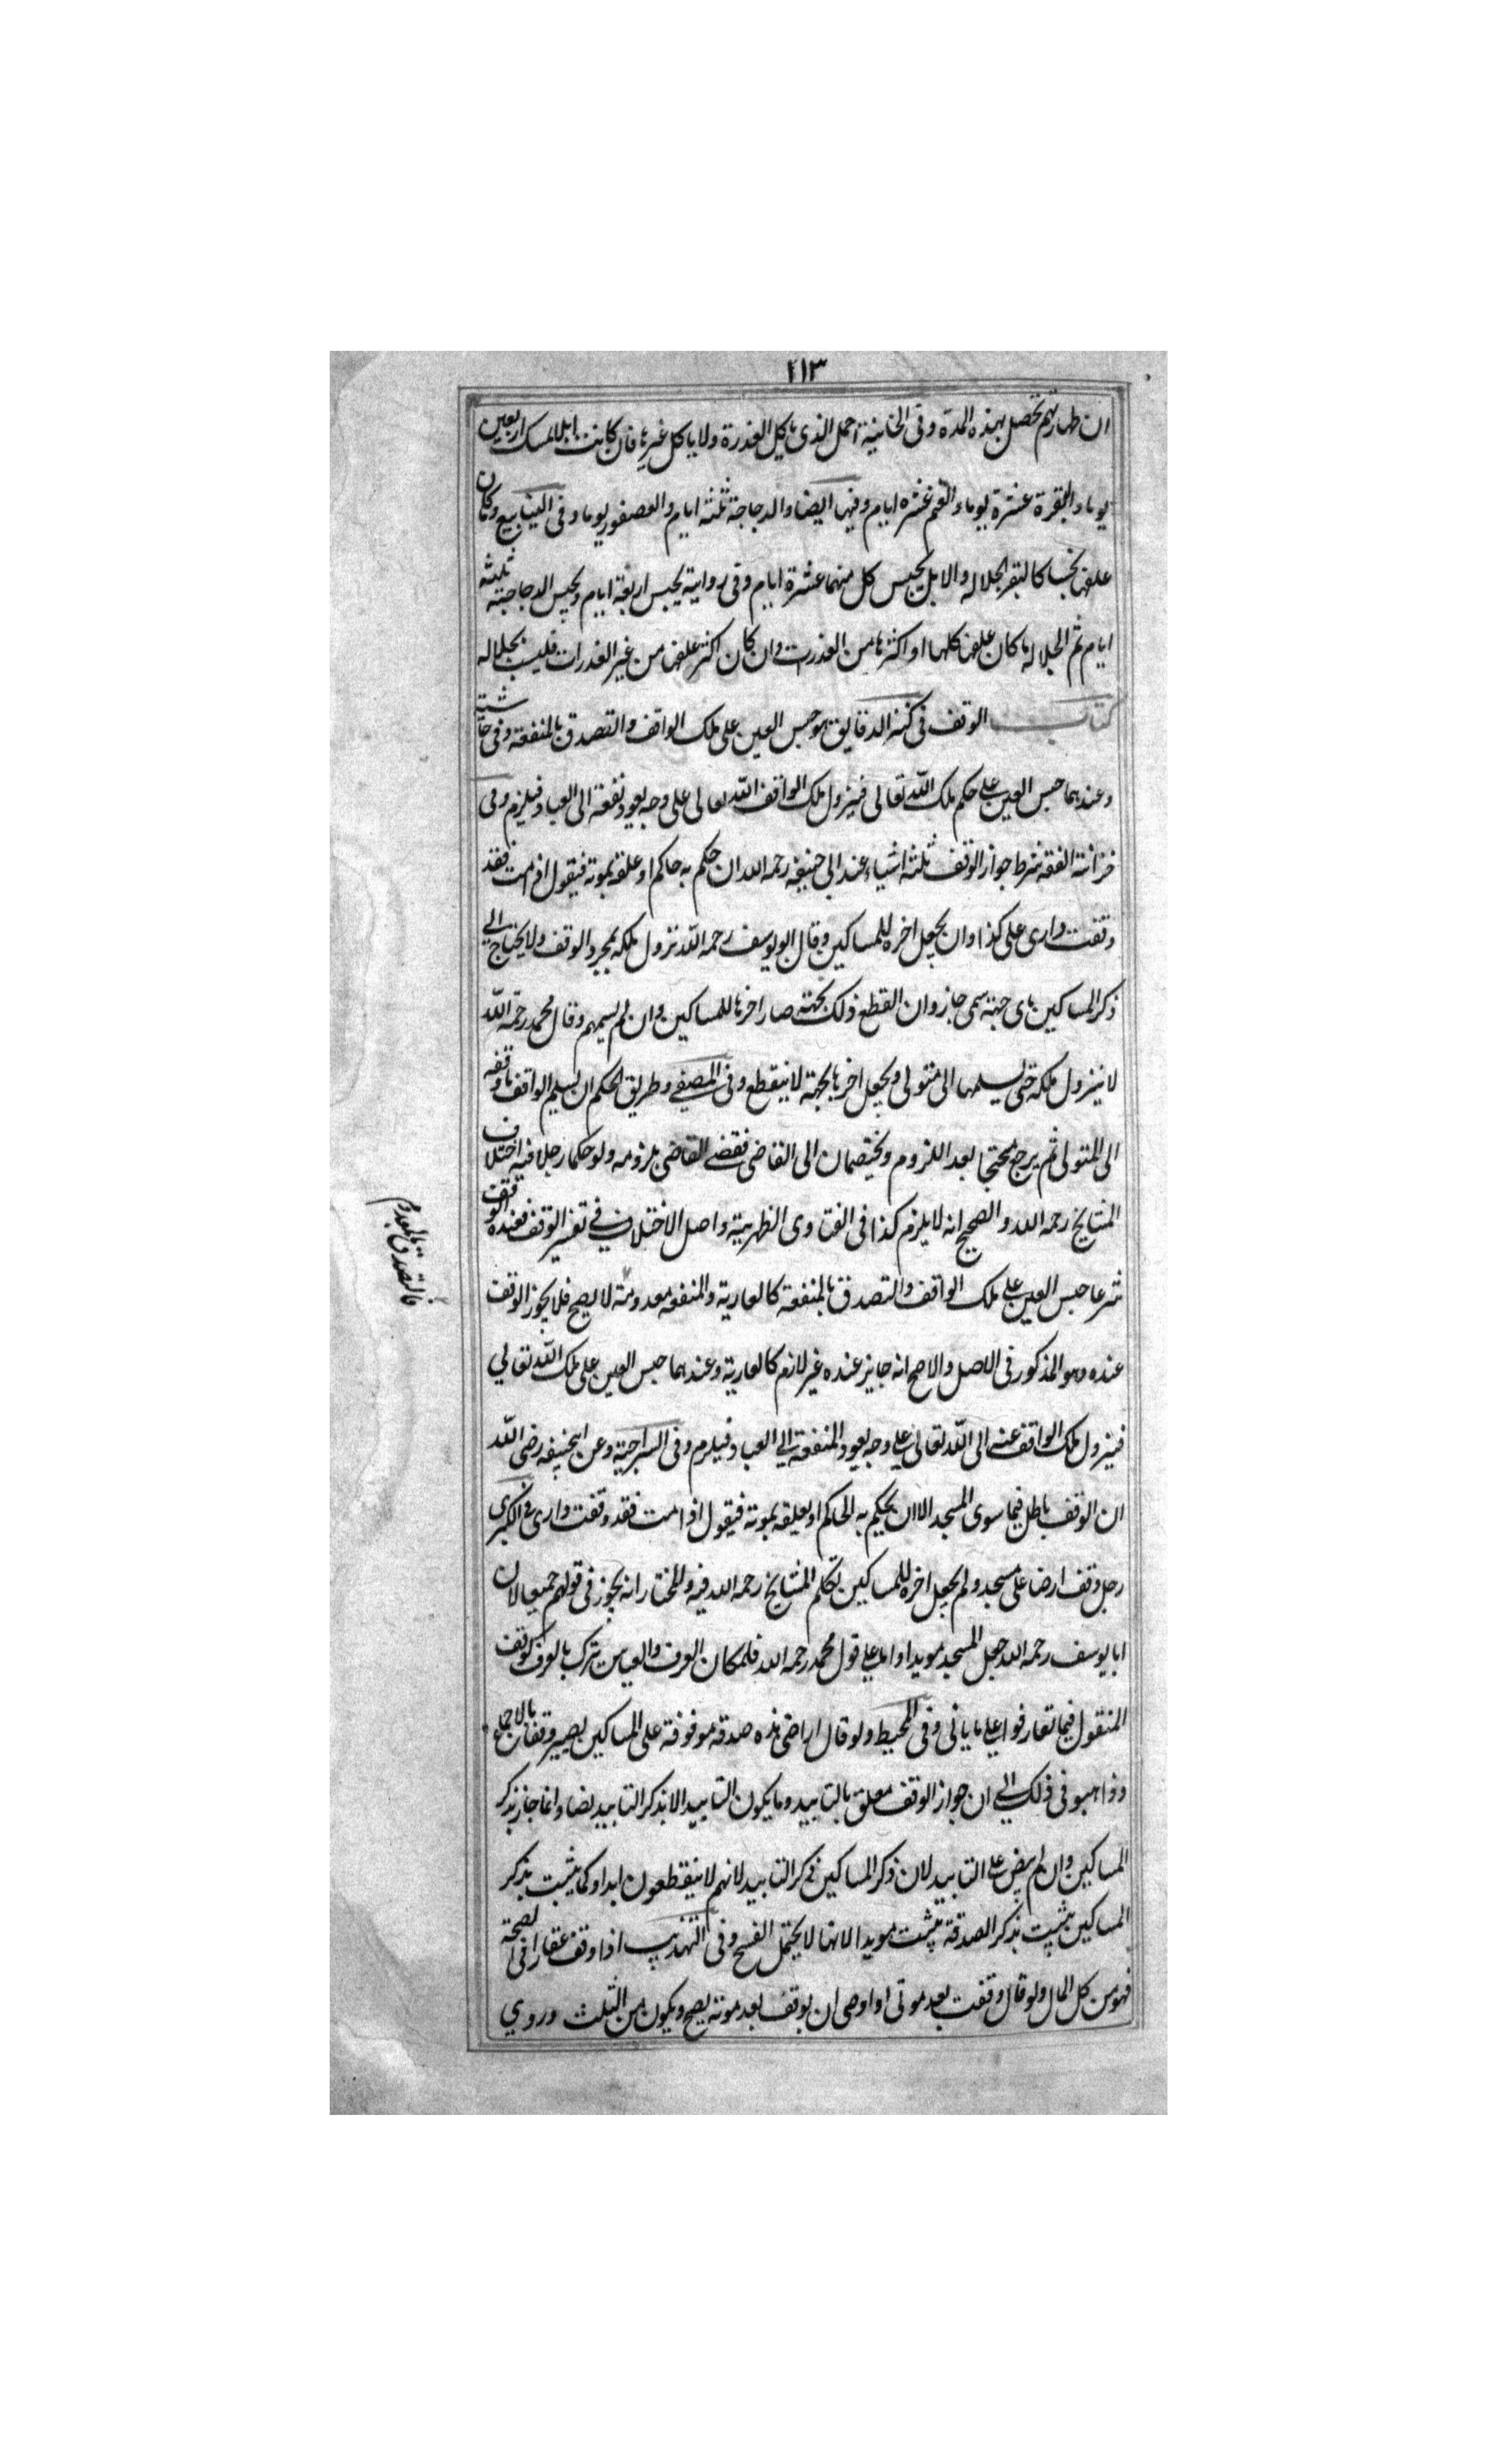 ٢١٣
ان طهارتهم تحصل بهذه المدة وفى الخانية الجمل الذى ياكل العذرة ولا ياكل غيرها فان كانت ابلا امسك اربعين
يوما والبقرة عشرة يوما والغنم عشره ايام وفيها ايضا والدجاجة ثلثه ايام والعصفور يوما وفى الينابيع وكان
علفها نجسا كالبقر الجلاله والابل يحبس كل منهما عشرة ايام وفى رواية يحبس اربعة ايام ويحبس الدجاجته ثلثه
ايام ثم الجلاله ما كان علفها كلها او اكثرها من العذرت وان كان اكثر علفها من غير العذرات فليست بجلاله
كتاب الوقف فى كنز الدقايق هو حبس العين على ملك الواقف والتصدق بالمنفعة وفى حاشيته
وعندهما حبس العين على حكم ملك الله تعالى فيزول ملك الواقف الله تعالى على وجه يعود نفعة الى العباد فيلزم وفى
خزانة الفقه شرط جواز الوقف ثلثه اشياء عند ابى حنيفه رحمه الله ان حكم به حاكم او علقه بموته فيقول اذا مت فقد
وقفت دارى على كذا وان يجعل اخره للمساكين وقال ابو يوسف رحمه الله تزول ملكه بمجرد الوقف ولا يحتاج الى
ذكر المساكين باى جهته سمى جاز وان انقطع ذلك بجهته صار اخرها للمساكين وان لم يسميهم وقال محمد رحمه الله
لا يزول ملكه حتى يسلمها الى متولى ويجعل اخرها بجهة لا ينقطع وفى المصفى وطريق الحكم ان يسلم الواقف ما وقفه
الى المتولى ثم يرجع محتجا بعد اللزوم ويختصمان الى القاضى فقضى القاضى بلزومه ولو حكما رجلا فيه اختلاف
المشايخ رحمه الله والصحيح انه لا يلزم كذا فى الفتاوى الظهيرية واصل الاختلاف فى تفسير الوقف فعنده الوقف
شرعا حبس العين على ملك الواقف والتصدق بالمنفعة كالعارية والمنفعه معدومة لا يصح فلا يجوز الوقف
فالتصدق بالمعدوم
عنده وهو المذكور فى الاصل والاصح انه جايز عنده غير لازم كالعارية وعندهما حبس العين على ملك الله تعالى
فيزول ملك الواقف عنه الى الله تعالى على وجه يعود المنفعة الى العباد فيلزم وفى السراجية وعن ابيحنيفه رضى الله
ان الوقف باطل فيما سوى المسجد الا ان يحكم به الحاكم او يعلقه بموته فيقول اذا مت فقد وقفت دارى فى الكبرى
رجل وقف ارضا على مسجد ولم يجعل اخره للمساكين تكلم المشايخ رحمه الله فيه والمختار انه يجوز فى قولهم جميعا لان
ابا يوسف رحمه الله جعل المسجد مويدا واما على قول محمد رحمه الله فلمكان العرف والقياس يترك بالعرف كوقف
المنقول فيما تعارفوا على ما ياتى وفى المحيط ولو قال اراضى هذه صدقه موقوفة على المساكين يصير وقفا بالاجماع
وذاهبو فى ذلك الى ان جواز الوقف معلق بالتابيد وما يكون التابيد الا بذكر التابيد نصا وانما جاز بذكر
المساكين وان لم ينص على التابيد لان ذكر المساكين ذكر التابيد لانهم لا ينقطعون ابدا وكما يثبت بذكر
المساكين يثبت بذكر الصدقة يثبت مويدا لانها لا يحتمل الفسخ وفى التهذيب اذا وقف عقارا فى الصحة
فهو من كل المال ولو قال وقفت بعد موتى او اوصى ان يوقف بعد موته يصح ويكون من الثلث وروي